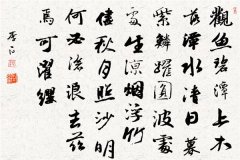 觀魚碧潭上木
落潭水清日暮
紫鱗躍圓波處
處生涼烟浮竹
盡秋月照沙明
何必滄浪去茲
焉可濯纓